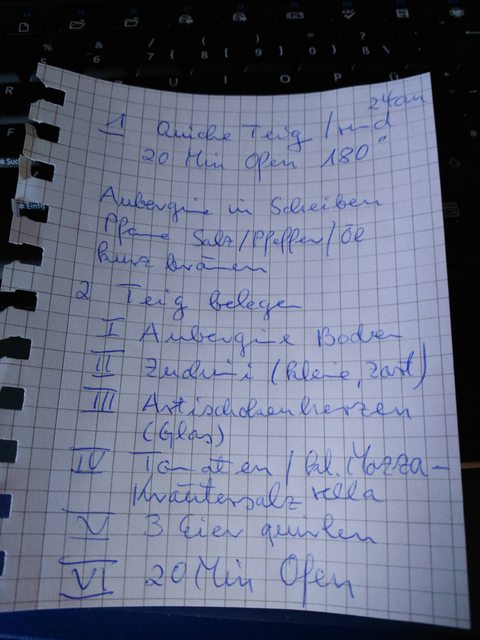 24cm
1 Quiche Teig / rund
20 Min Ofen 180°
Aubergine in Scheiben
Pfanne Salz/Pfeffer/Öl
kurz bräunen
2 Teig belegen
I Aubergine Boden
II Zuchini (kleine, zart)
III Artischokenherzen
(Glas)
IV Tomaten / kl. Mozza-
Kräutersalz rella
V 3 Eier
VI 20 Min Ofen